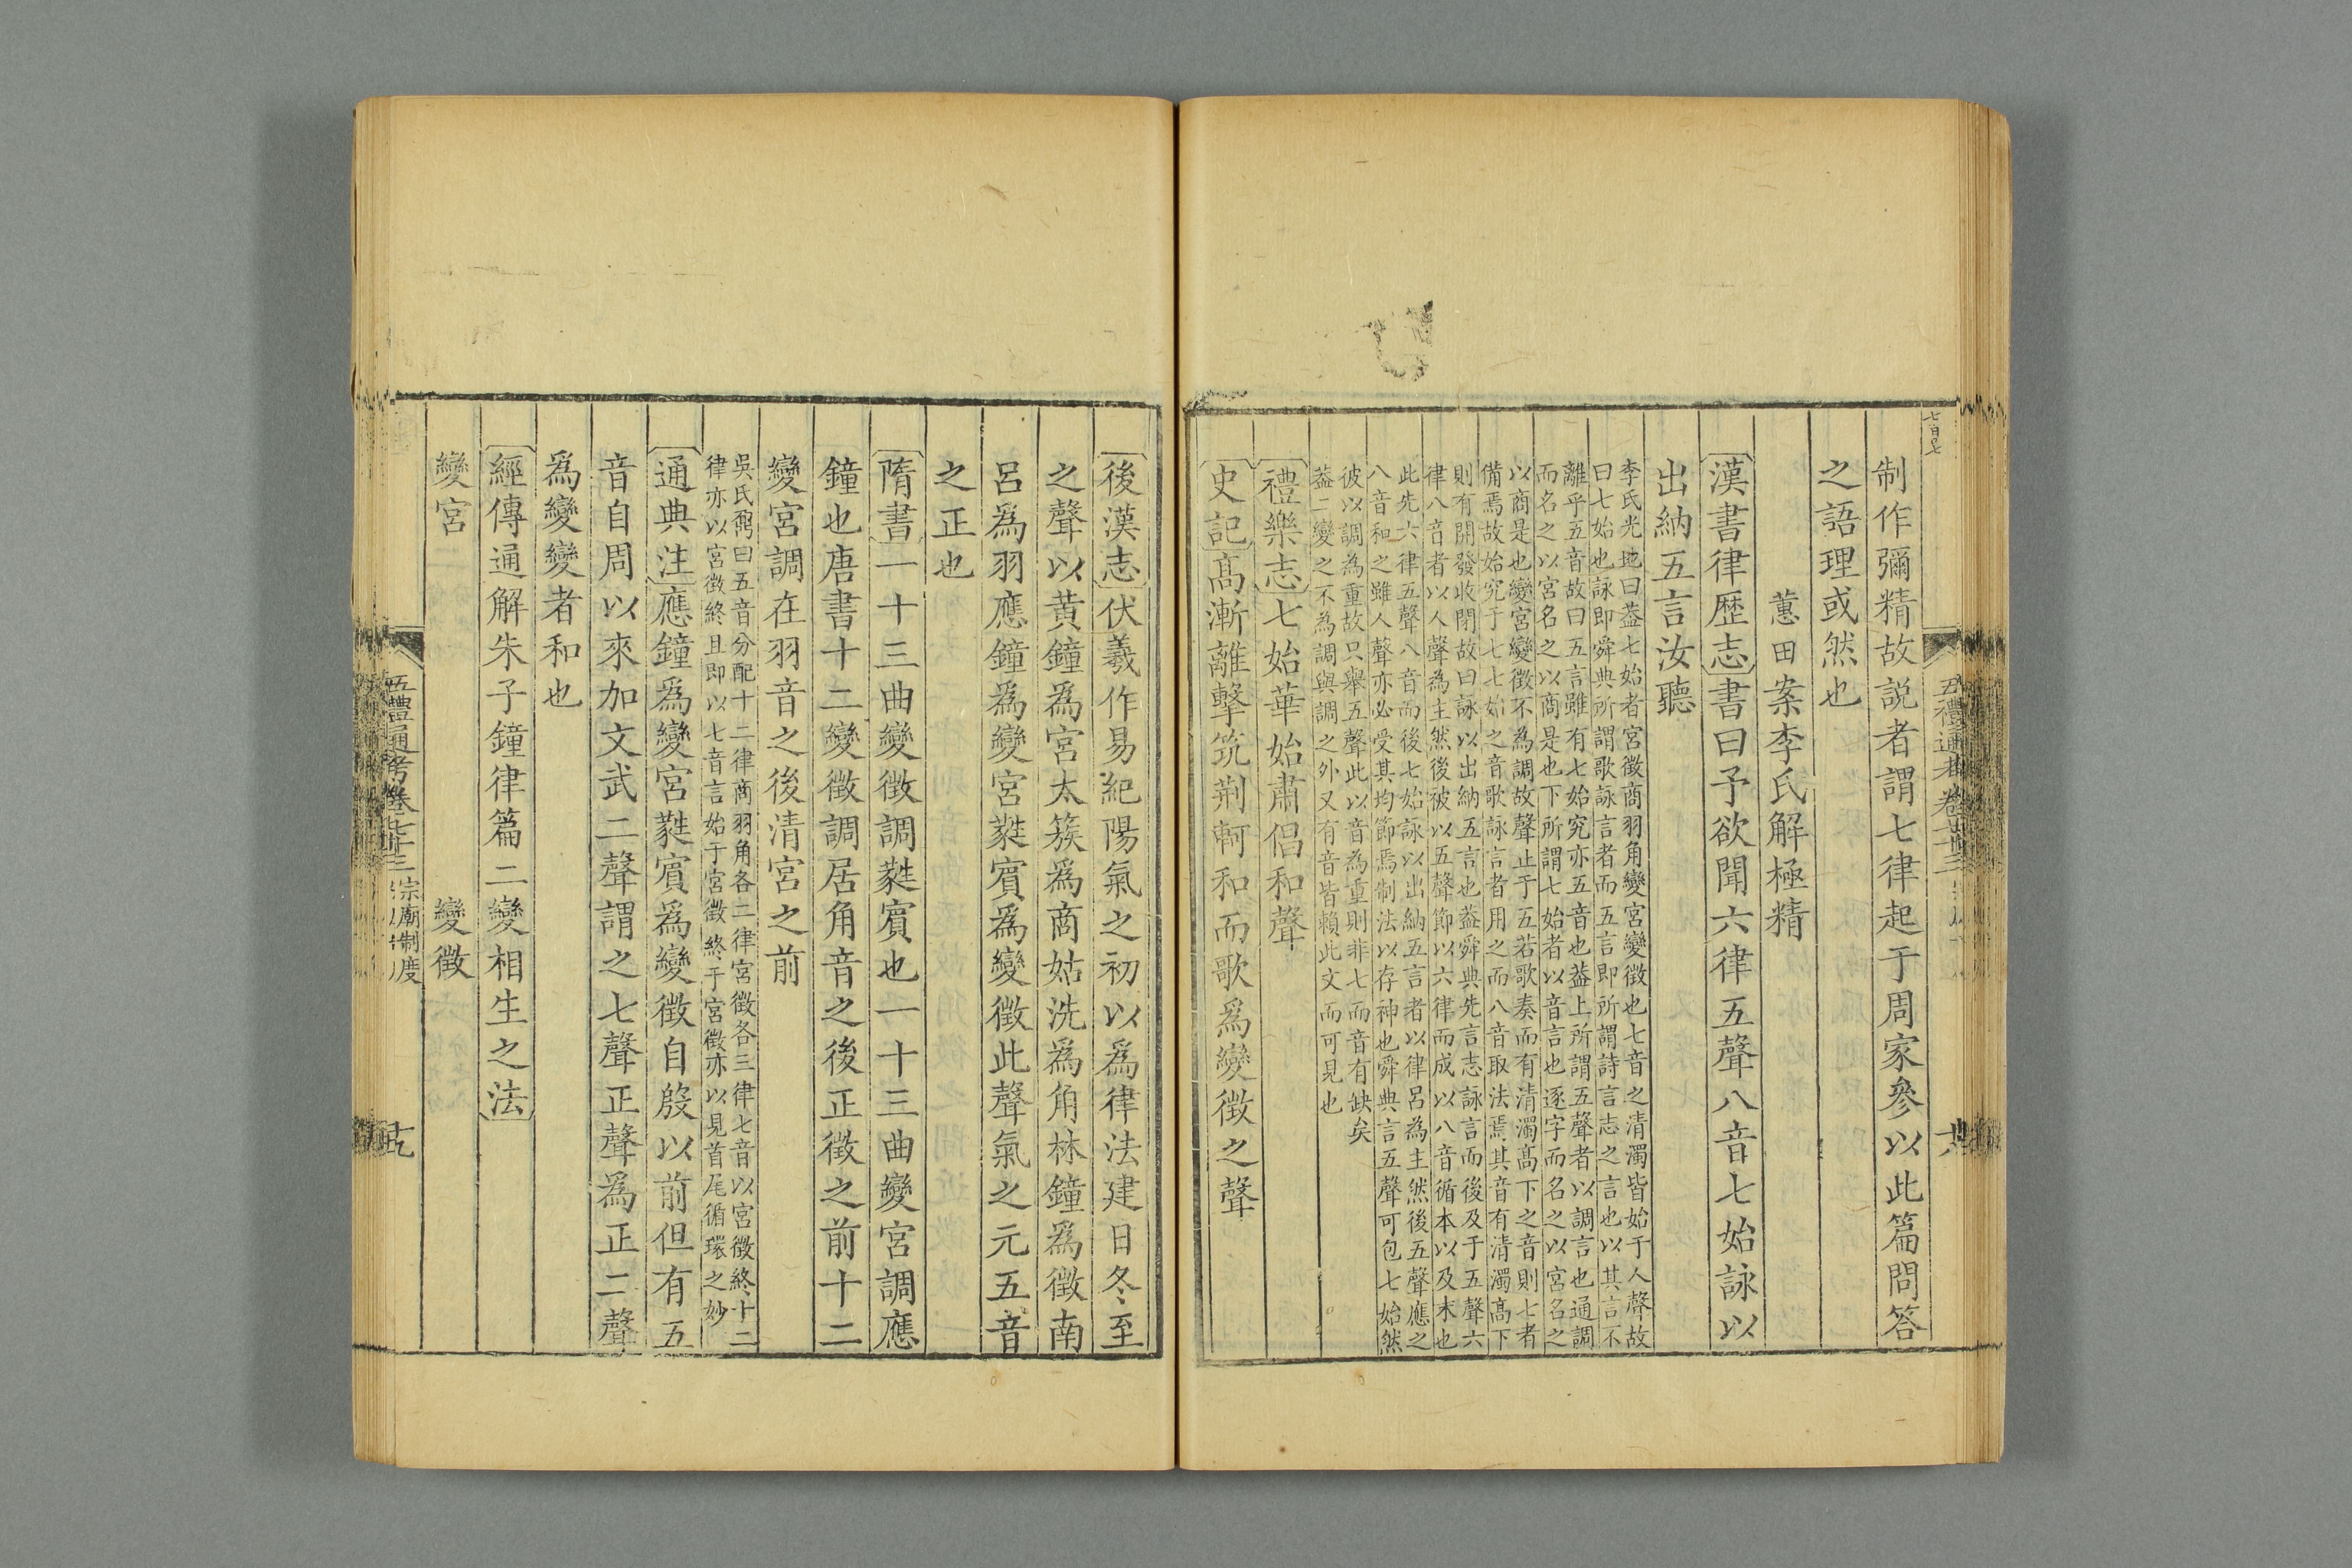 制作彌精故說者謂七律起于周家參以此篇問答
之語理或然也
蕙田案李氏解極精
漢書律歷志書曰予欲聞六律五聲八音七始詠以
出納五言汝聽
李氏光地曰葢七始者宮徵商羽角變宮變徵也七音之清濁皆始于人聲故
曰七始也詠即舜典所謂歌詠言者而五言即所謂詩言志之言也以其言不
離乎五音故曰五言雖有七始究亦五音也葢上所謂五聲者以調言也通調
而名之以宮名之以商是也下所謂七始者以音言也逐字而名之以宮名之
以商是也變宮變徵不為調故聲止于五若歌奏而有清濁高下之音則七者
備焉故始究于七七始之音歌詠言者用之而八音取法焉其音有清濁高下
則有開發收閉故曰詠以出納五言也葢舜典先言志詠言而後及于五聲六
律八音者以人聲為主然後被以五聲節以六律而成以八音循本以及末也
此先六律五聲八音而後七始詠以出納五言者以律呂為主然後五聲應之
八音和之雖人聲亦必受其均節焉制法以存神也舜典言五聲可包七始然
彼以調為重故只舉五聲此以音為重則非七而音有缺矣
葢二變之不為調與調之外又有音皆賴此文而可見也
禮樂志七始華始肅倡和聲
史記高漸離擊筑荆軻和而歌爲變徵之聲
後漢志伏羲作易紀陽氣之初以爲律法建日冬至
之聲以黃鐘爲宮太簇爲商姑洗爲角林鐘爲徵南
呂爲羽應鐘爲變宮蕤賓爲變徵此聲氣之元五音
之正也
隋書一十三曲變徵調蕤賓也一十三曲變宮調應
鐘也唐書十二變徵調居角音之後正徵之前十二
變宮調在羽音之後清宮之前
吳氏鼐曰五音分配十二律商羽角各二律宮徵各三律七音以宮徵終十二
律亦以宮徵終且即以七音言始于宮徵終于宮徵亦以見首尾循環之妙
通典注應鐘爲變宮蕤賓爲變徵自殷以前但有五
音自周以來加文武二聲謂之七聲正聲爲正二聲
爲變變者和也
經傳通解朱子鐘律篇二變相生之法
變宮 變徵
五禮通考卷七十三 宗廟制度